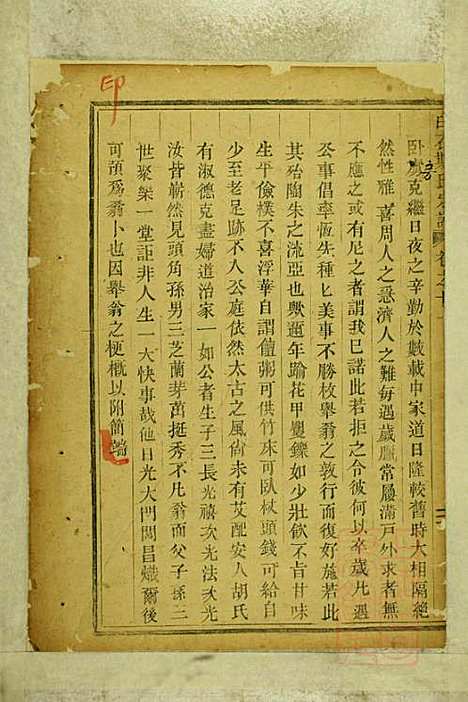 印
卧薪克繼日夜之辛勤於數載中家道日隆較舊時大相隔絕
然性雅喜周人之急濟人之難每遇歲臘常屨滿戸外求者無
不應之或有尼之者謂我已諾此若拒之令彼何以卒歲凡遇
公事倡率恆先種匕美事不勝枚舉翁之敦行而復好施若此
其殆陶朱之流亞也歟邇年踰花甲矍鑠如少壯飲不甘味
生平儉樸不喜浮華自謂饘粥可供竹床可臥杖頭錢可給自
少至老足跡不入公庭依然太古之風尚未有艾配安人胡氏
有淑德克盡婦道治家一如公者生子三長光禧次光法次光
汝皆嶄然見頭角孫男三芝蘭芽茁挺秀不凡翁而父子孫三
世聚樂一堂詎非人生一大快事哉他日光大門閭昌熾爾後
可預爲翁卜也因舉翁之梗概以附簡端